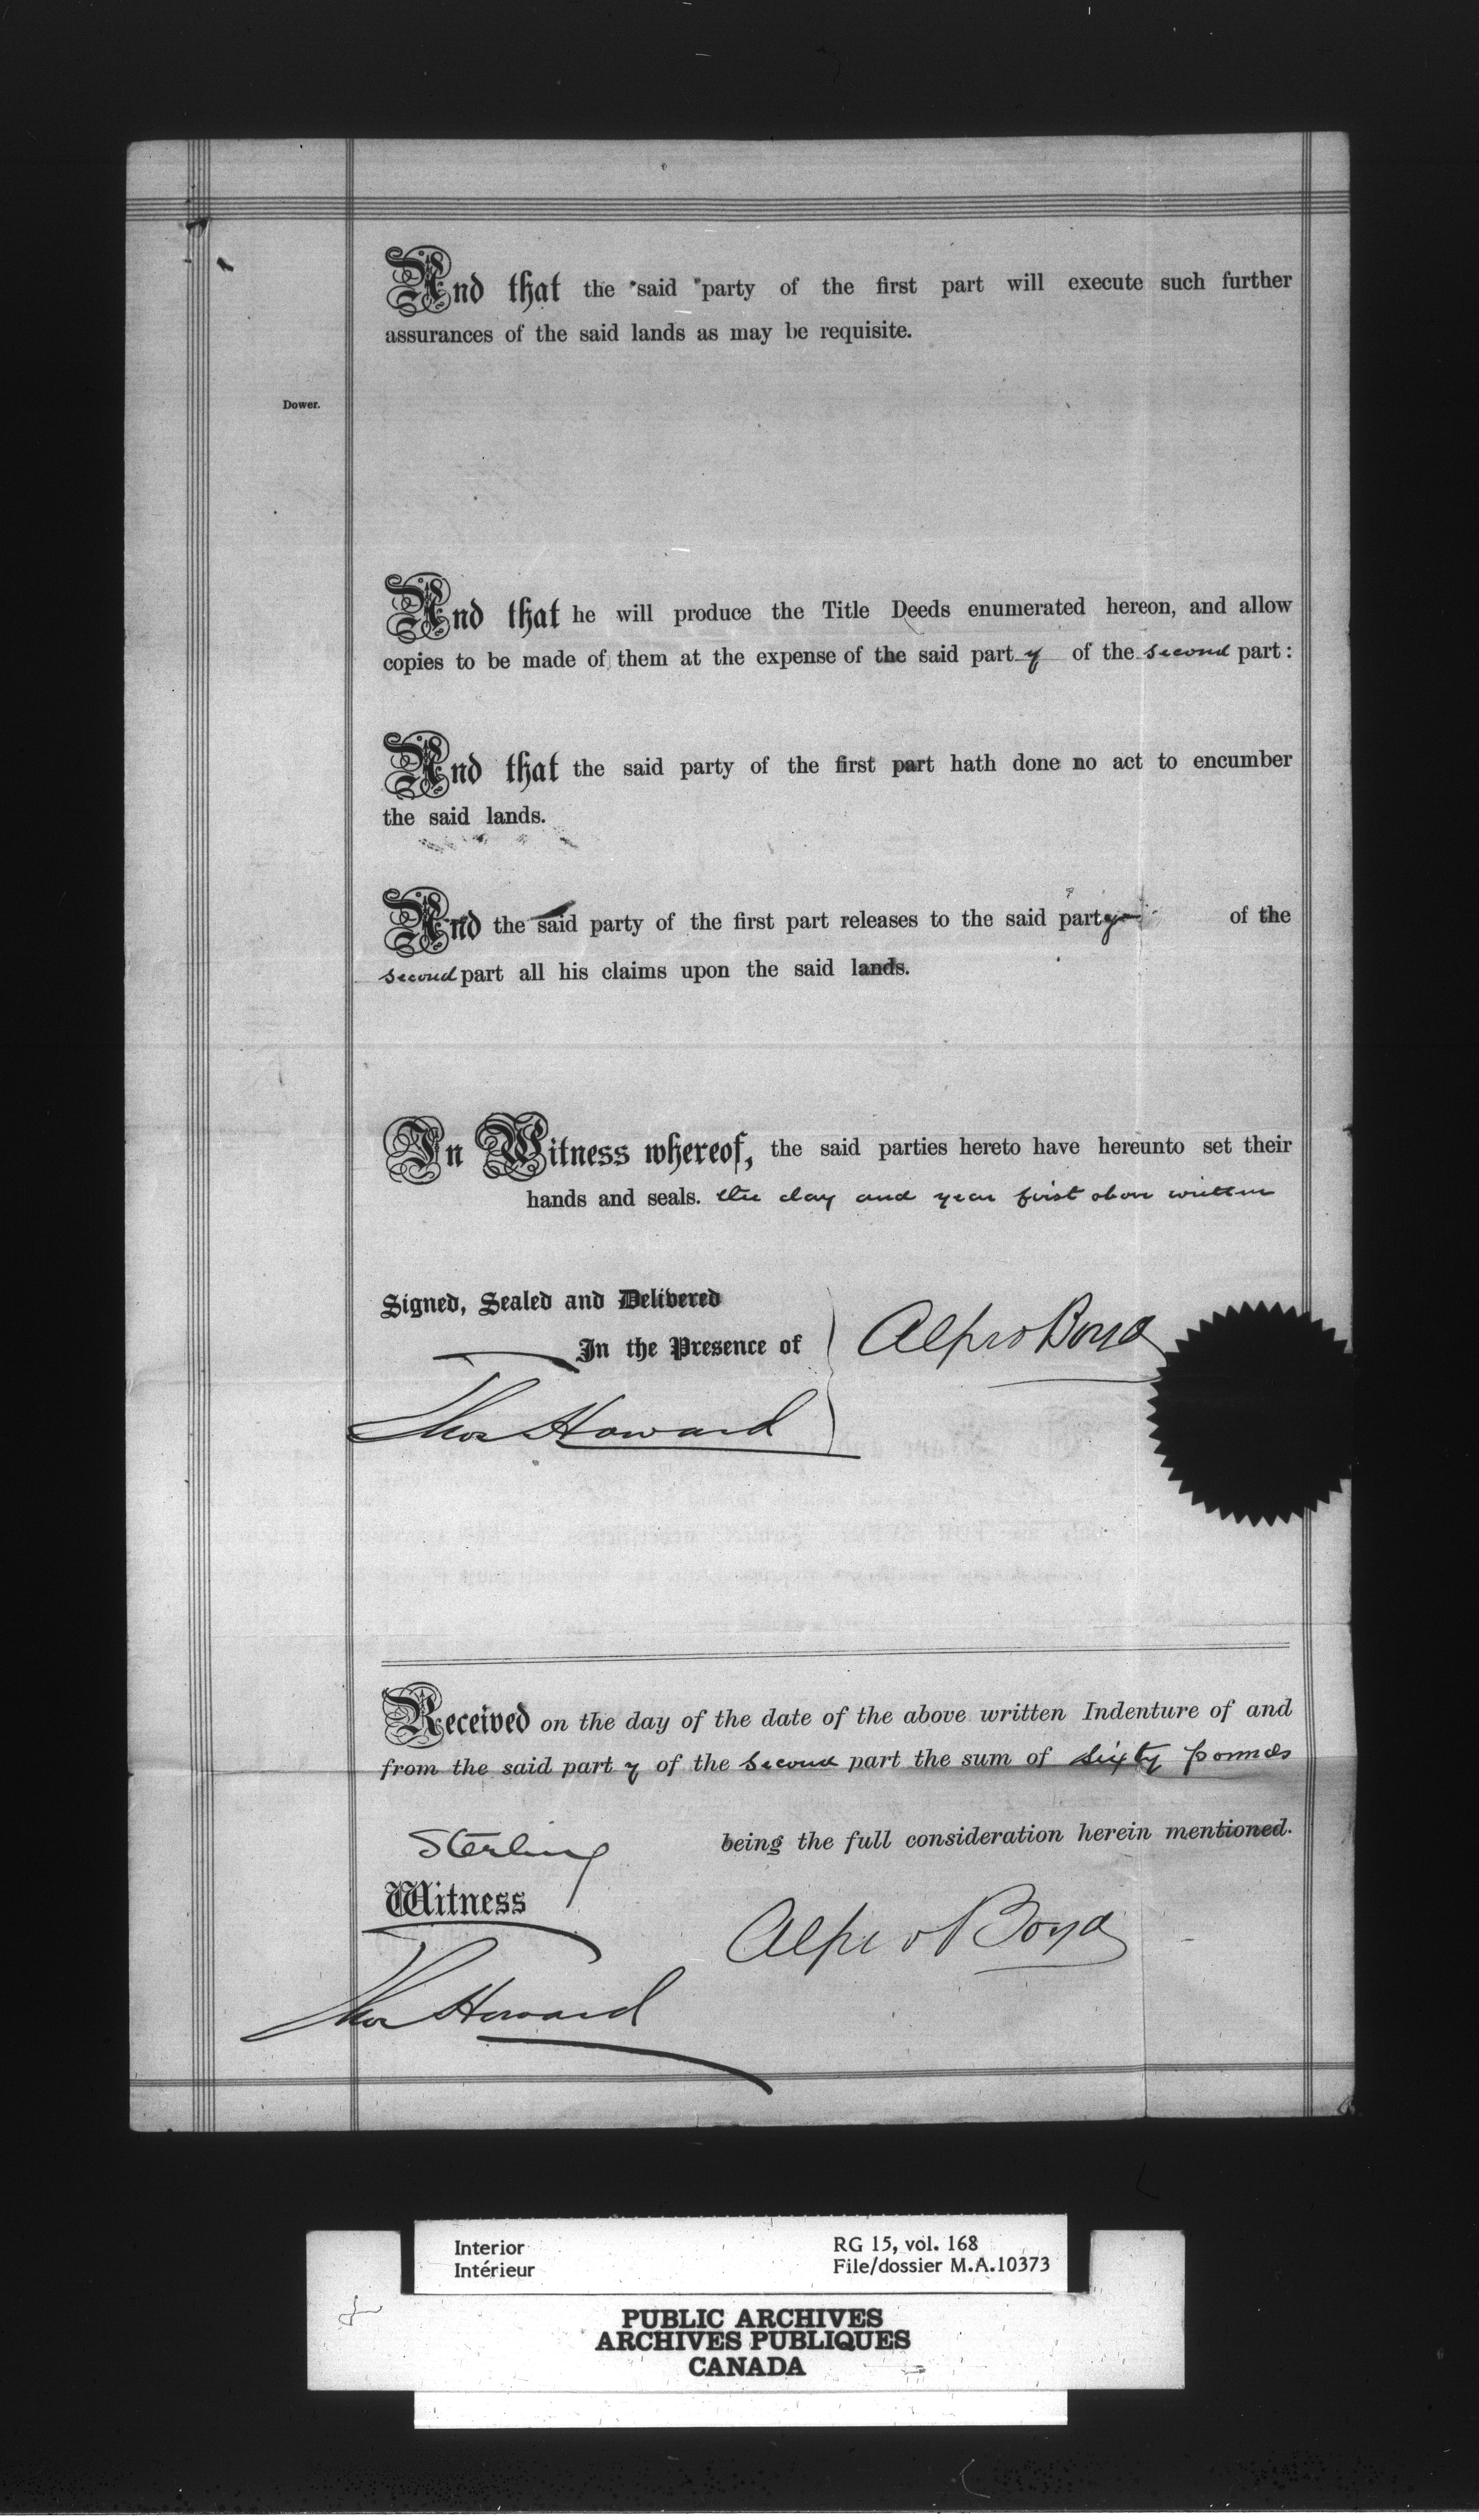 And that the said party of the first part will execute such further
assurances of the said lands as may be requisite.
Dower.
And that he will produce the Title Deeds enumerated hereon, and allow
copies to be made of them at the expense of the said part y of the second part:
And that the said party of the first part hath done no act to encumber
the said lands.
And the said party of the first part releases to the said party of the
second part all his claims upon the said lands.
In Witness whereof, the said parties hereto have hereunto set their
hands and seals. the day and year first above written
Signed, Sealed and Delivered
In the Presence of
Alfred Boyd
Thos Howard
Received on the day of the date of the above written Indenture of and
from the said part y of the second part the sum of sixty pounds
Sterling being the full consideration herein mentioned.
Witness
Alfred Boyd
Thos Howard
Interior
Intérieur
RG 15, vol. 168
File/dossier M.A.10373
PUBLIC ARCHIVES
ARCHIVES PUBLIQUES
CANADA